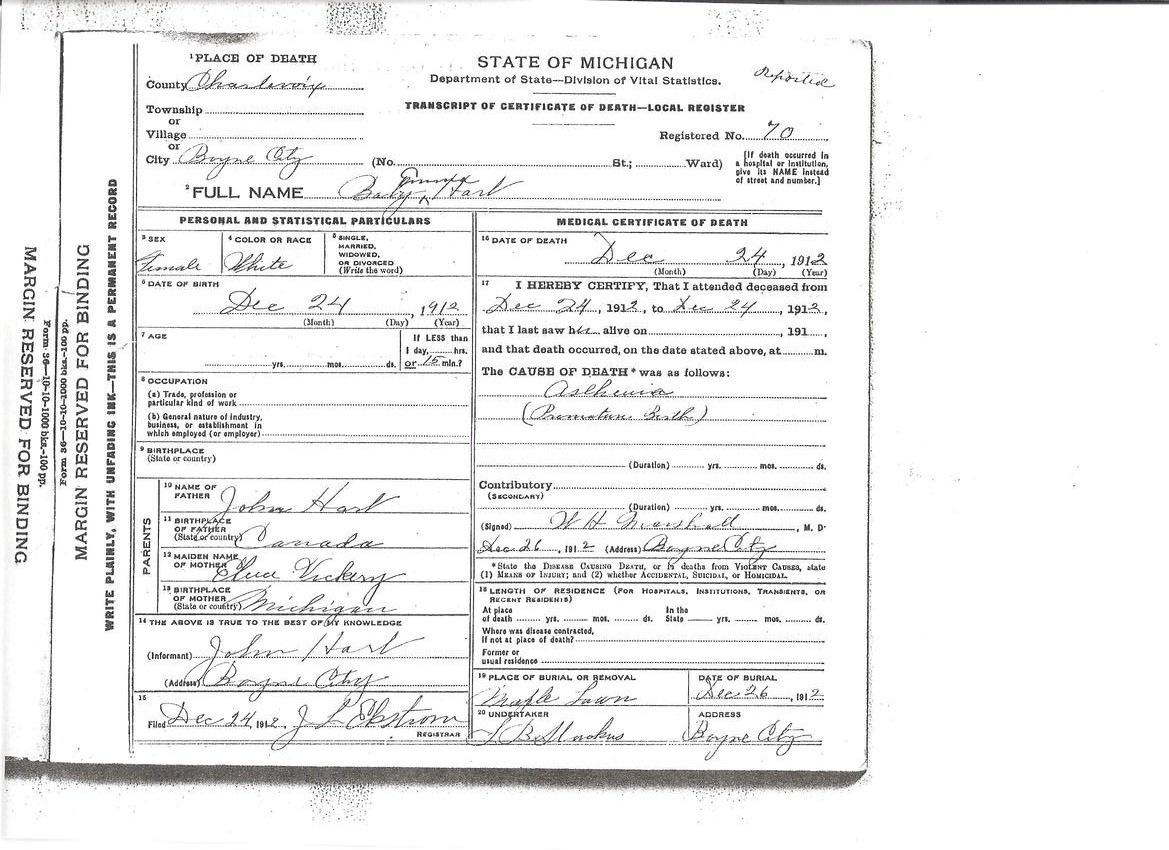 ¹PLACE OF DEATH
County Charlevoix
Township
or
Village
or
City Boyne City
STATE OF MICHIGAN
Department of State—Division of Vital Statistics.
Reported
TRANSCRIPT OF CERTIFICATE OF DEATH—LOCAL REGISTER
Registered No. 70
(No. St.; Ward)
[If death occurred in
a hospital or institution,
give its NAME instead
of street and number.]
²FULL NAME Baby Hart
PERSONAL AND STATISTICAL PARTICULARS
³ SEX
Female
⁴ COLOR OR RACE
White
⁵ SINGLE,
MARRIED,
WIDOWED,
OR DIVORCED
(Write the word)
⁶ DATE OF BIRTH
Dec 24, 1912
(Month) (Day) (Year)
⁷ AGE
yrs. mos. ds.
If LESS than
1 day, hrs.
or 15 min.?
⁸ OCCUPATION
(a) Trade, profession or
particular kind of work
(b) General nature of industry,
business, or establishment in
which employed (or employer)
⁹ BIRTHPLACE
(State or country)
PARENTS
¹⁰ NAME OF
FATHER John Hart
¹¹ BIRTHPLACE
OF FATHER
(State or country) Canada
¹² MAIDEN NAME
OF MOTHER Vickery
¹³ BIRTHPLACE
OF MOTHER
(State or country) Michigan
¹⁴ THE ABOVE IS TRUE TO THE BEST OF MY KNOWLEDGE
(Informant) John Hart
(Address) Boyne City
¹⁵
Filed Dec 24, 1912, J L Ekstrom
REGISTRAR
MEDICAL CERTIFICATE OF DEATH
¹⁶ DATE OF DEATH
Dec 24, 1912
(Month) (Day) (Year)
¹⁷ I HEREBY CERTIFY, That I attended deceased from
Dec 24, 1912, to Dec 24, 1912,
that I last saw her alive on , 191 ,
and that death occurred, on the date stated above, at m.
The CAUSE OF DEATH* was as follows:
Asthenia
(Premature Birth)
(Duration) yrs. mos. ds.
Contributory
(SECONDARY)
(Duration) yrs. mos. ds.
(Signed) W H Marshall, M. D.
Dec 26, 1912 (Address) Boyne City
*State the DISEASE CAUSING DEATH, or in deaths from VIOLENT CAUSES, state
(1) MEANS OF INJURY; and (2) whether ACCIDENTAL, SUICIDAL, or HOMICIDAL.
¹⁸ LENGTH OF RESIDENCE (FOR HOSPITALS, INSTITUTIONS, TRANSIENTS, OR
RECENT RESIDENTS)
At place
of death yrs. mos. ds.
In the
State yrs. mos. ds.
Where was disease contracted,
if not at place of death?
Former or
usual residence
¹⁹ PLACE OF BURIAL OR REMOVAL
Maple Lawn
DATE OF BURIAL
Dec 26, 1912
²⁰ UNDERTAKER
ADDRESS
Boyne City
WRITE PLAINLY, WITH UNFADING INK—THIS IS A PERMANENT RECORD
MARGIN RESERVED FOR BINDING
Form 36—10-10-1000 bks.-100 pp.
Form 36—10-10-1000 bks.-100 pp.
MARGIN RESERVED FOR BINDING